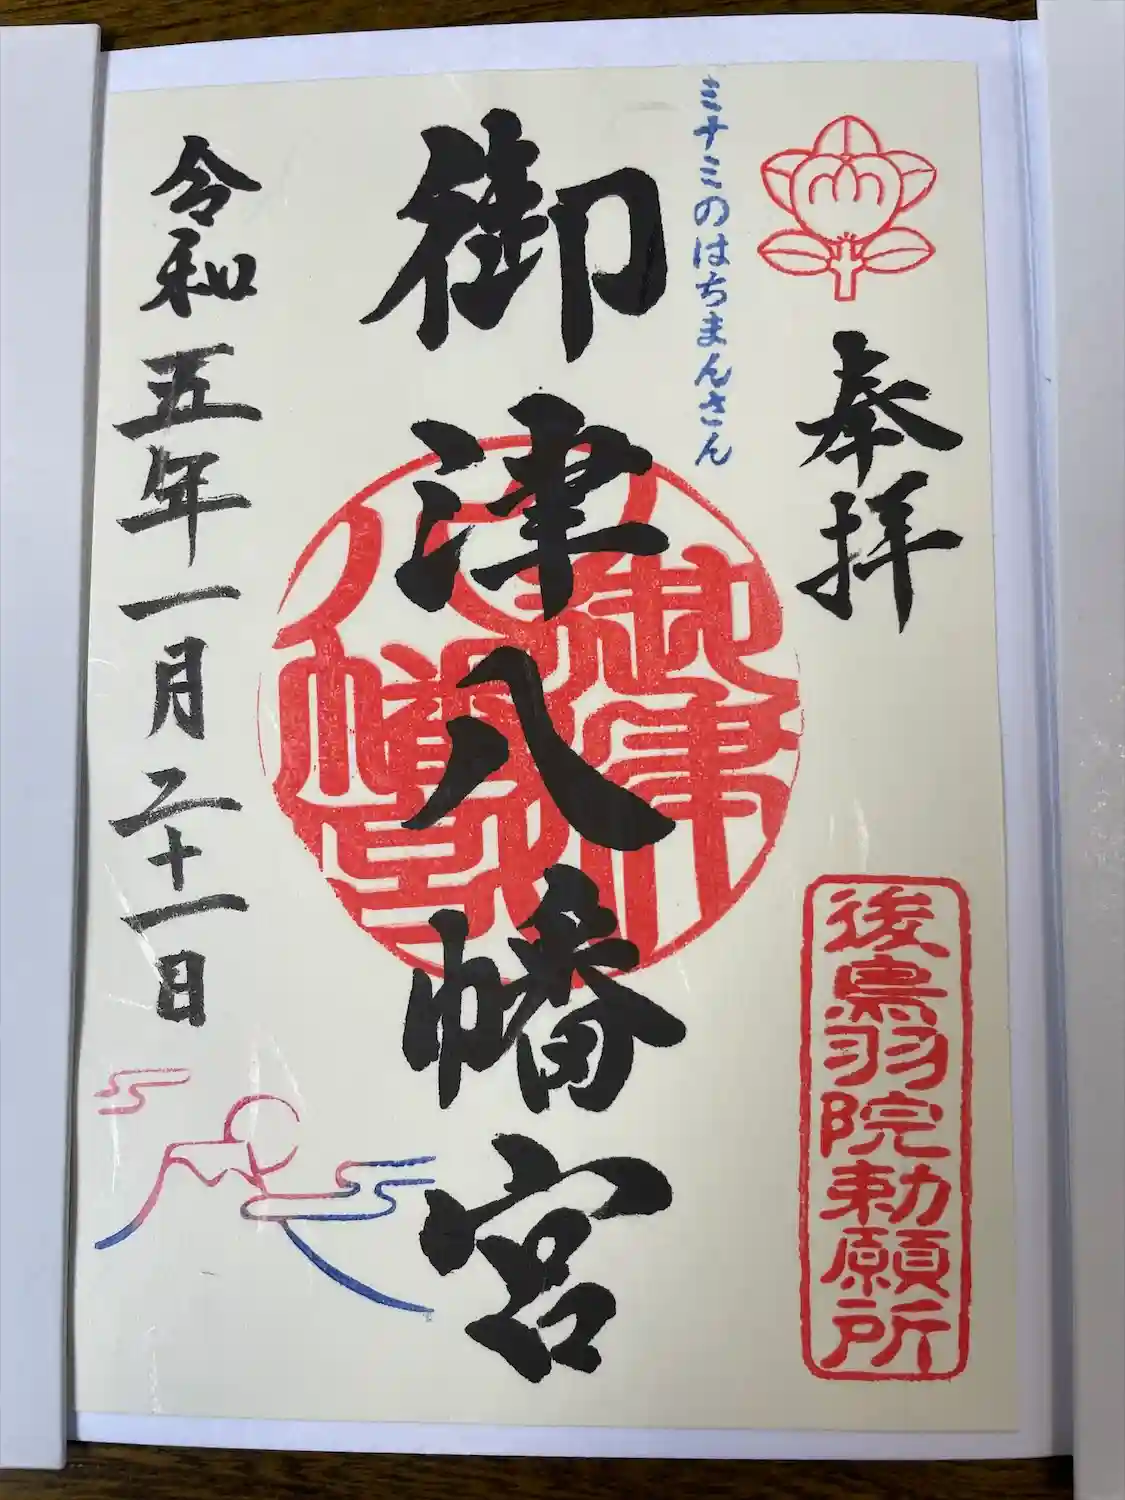 奉拝
後鳥羽院勅願所
ミナミのはちまんさん
御津八幡宮
御津八幡宮
令和五年一月二十一日